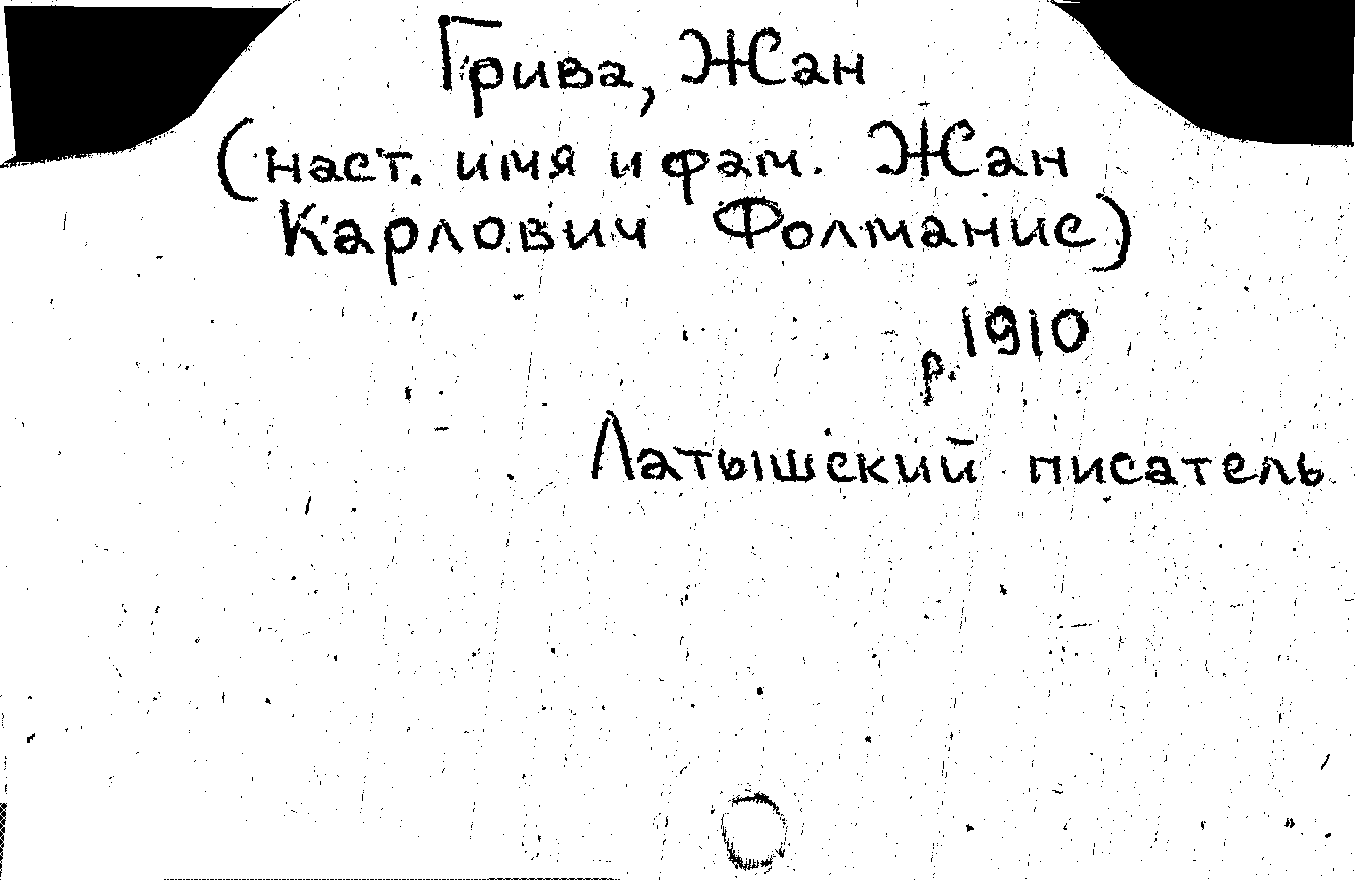 Грива, Жан
(наст. имя и фам. Жан
Карлович Фолманис)
р. 1910
Латышский писатель